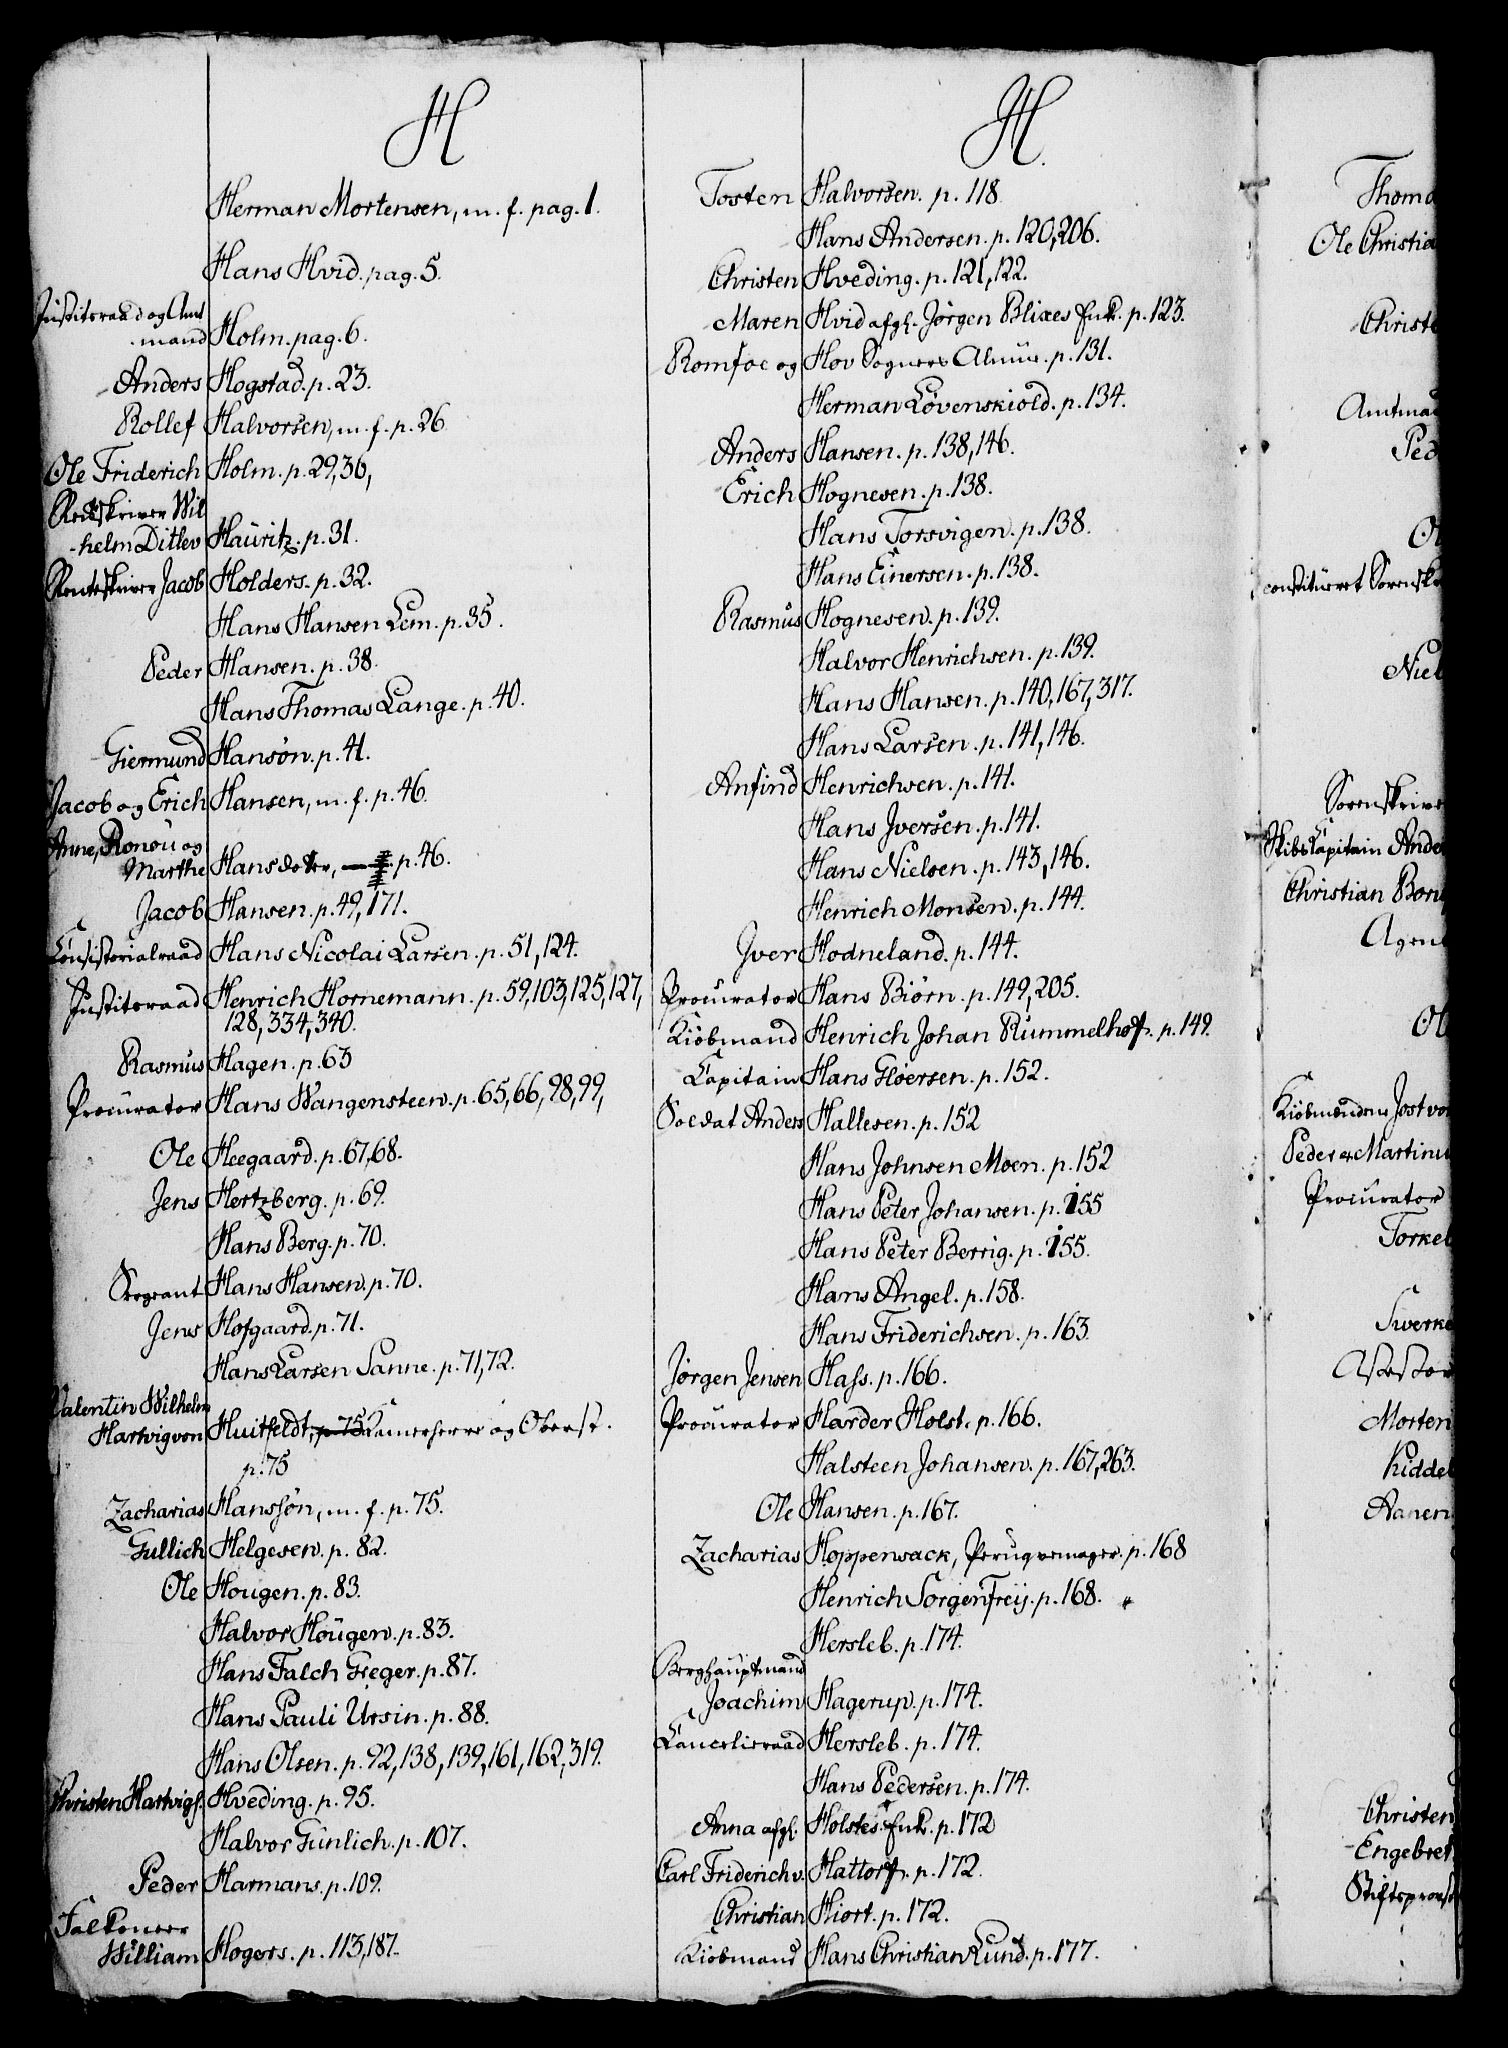 H
Herman Mortensen, m. f. pag. 1.
Hans Hvid. pag. 5.
Justitsraad og Amt
-mand Holm. pag. 6.
Anders Hogstad. p. 23.
Rollef Halvorsen, m. f. p. 26
Ole Friderich Holm. p. 29, 36,
Renteskriver Wil
-helm Ditlev Hauritz. p. 31.
Renteskriver Jacob Holders. p. 32.
Hans Hansen Lem. p. 35.
Peder Hansen. p. 38.
Hans Thomas Lange. p. 40.
Giermund Hansøn. p. 41.
Jacob og Erich Hansen, m. f. p. 46.
Anne, Ronou og
Marthe Hansdøter, p. 46.
Jacob Hansen. p. 49, 171.
Consistorialraad Hans Nicolai Larsen. p. 51, 124.
Justitsraad Henrich Hornemann. p. 59, 103, 125, 127,
128, 334, 340.
Rasmus Hagen. p. 63
Procurator Hans Wangensteen. p. 65, 66, 98, 99,
Ole Heegaard. p. 67, 68.
Jens Hertzberg. p. 69.
Hans Berg. p. 70.
Sergeant Hans Hansen. p. 70.
Jens Hofgaard. p. 71.
Hans Larsen Sanne. p. 71, 72.
Valentin Wilhelm
Hartvig von Huitfeldt, p. 75 Kamerherre og Oberst.
p. 75
Zacharias Hanssøn, m. f. p. 75.
Gullich Helgesen. p. 82.
Ole Hougen. p. 83.
Halvor Hougen. p. 83.
Hans Falch Gieger. p. 87.
Hans Pauli Ursin. p. 88.
Hans Olsen. p. 92, 138, 139, 161, 162, 319.
Christen Hartvigs. Hveding. p. 95.
Halvor Gunlich. p. 107.
Peder Harmans. p. 109.
Falkoneer
William Hogers. p. 113, 187.
H.
Tosten Halvorsen. p. 118
Hans Andersen. p. 120, 206.
Christen Hveding. p. 121, 122.
Maren Hvid afgl. Jørgen Blixes Enk. p. 123.
Romfoe og Hov Sogners Almue. p. 131.
Herman Løvenskiold. p. 134.
Anders Hansen. p. 138, 146.
Erich Hognesen. p. 138.
Hans Torsvigen. p. 138.
Hans Einersen. p. 138.
Rasmus Hognesen. p. 139.
Halvor Henrichsen. p. 139.
Hans Hansen. p. 140, 167, 317.
Hans Larsen. p. 141, 146.
Anfind Henrichsen. p. 141.
Hans Iversen. p. 141.
Hans Nielsen. p. 143, 146.
Henrich Monsen. p. 144.
Iver Hodneland. p. 144.
Procurator Hans Biørn. p. 149, 205.
Kiøbmand Henrich Johan Rummelhof. p. 149.
Capitain Hans Gløersen. p. 152.
Soldat Anders Hallesen. p. 152
Hans Johnsen Moen. p. 152
Hans Peter Johansen. p. 155
Hans Peter Berrig. p. 155.
Hans Angel. p. 158.
Hans Friderichsen. p. 163.
Jørgen Jensen Hass. p. 166.
Procurator Harder Holst. p. 166.
Halsteen Johansen. p. 167, 263.
Ole Hansen. p. 167.
Zacharias Hoppenwack, Peruqvemager. p. 168
Henrich Sorgenfreij. p. 168.
Hersleb. p. 174.
Berghauptmand
Joachim Hagerup. p. 174.
Cancelieraad Hersleb. p. 174.
Hans Pedersen. p. 174.
Anna afgl. Holstes Enk. p. 172
Carl Friderich v. Hattorf. p. 172.
Christian Hiort. p. 172.
Kiøbmand Hans Christian Lund. p. 177.
Thoma
Ole Christia
Christe
Amtmad
Ped
Ol
constitueret Sorenskr
Niel
Sorenskrive
Skibs Capitain Ande
Christian Bon
Agen
Ol
Kiøbmændene Jost vo
Peder & Martinu
Procurator
Torkel
Sverke
Assessor
Morten
Kiddel
Aanen
Christen
Engebret
Stiftsprovst